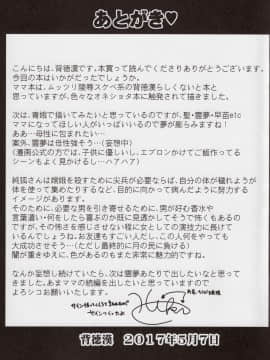 あとがき♥
こんにちは、背徳漢です。本買って読んでくださりありがとうございます。
今回の本はいかがだったでしょうか。
ママ本は、ムッツリ陵辱スケベ系の背徳漢らしくないと
思っていますが、色々なオネショタ本に触発されて描きました。
次は、青娥で描いてみたいと思っているのですが、聖・霊夢・早苗etc
ママになってほしい人がいっぱいいるので夢が膨らみますね！
ああ…母性に包まれたい…
案外、霊夢は母性強そう…（妄想中）
（漫画公式の方では、子供に優しいし、エプロンかけてご飯作ってる
シーンもよく見かけるし…ハアハア）
純狐さんは嫦娥を殺すために尖兵が必要ならば、自分の体が穢れようが
体を使って集めたりするなど、目的に向かって病んだように努力する
イメージがあります。
そのために、必要な男を引き寄せるために、男が好む香水や
言葉遣い・何をしたら喜ぶのか既に見透かしてそうで怖くもあるので
すが、その怖さを感じさせない様に女としての演技力に長けて
いるんでしょうね。お友達もすごい人だし、この人何をやっても
大成功させそう…（ただし最終的に月の民に負ける）
闇が重きゆえに、色があるのもまた非常に魅力的ですね。
なんか妄想し続けていたら、次は霊夢あたりで出したいなと思って
きました。あまママの続編を出したいと思っていますので
よろシコお願いいたします。
背徳漢 2017年5月7日